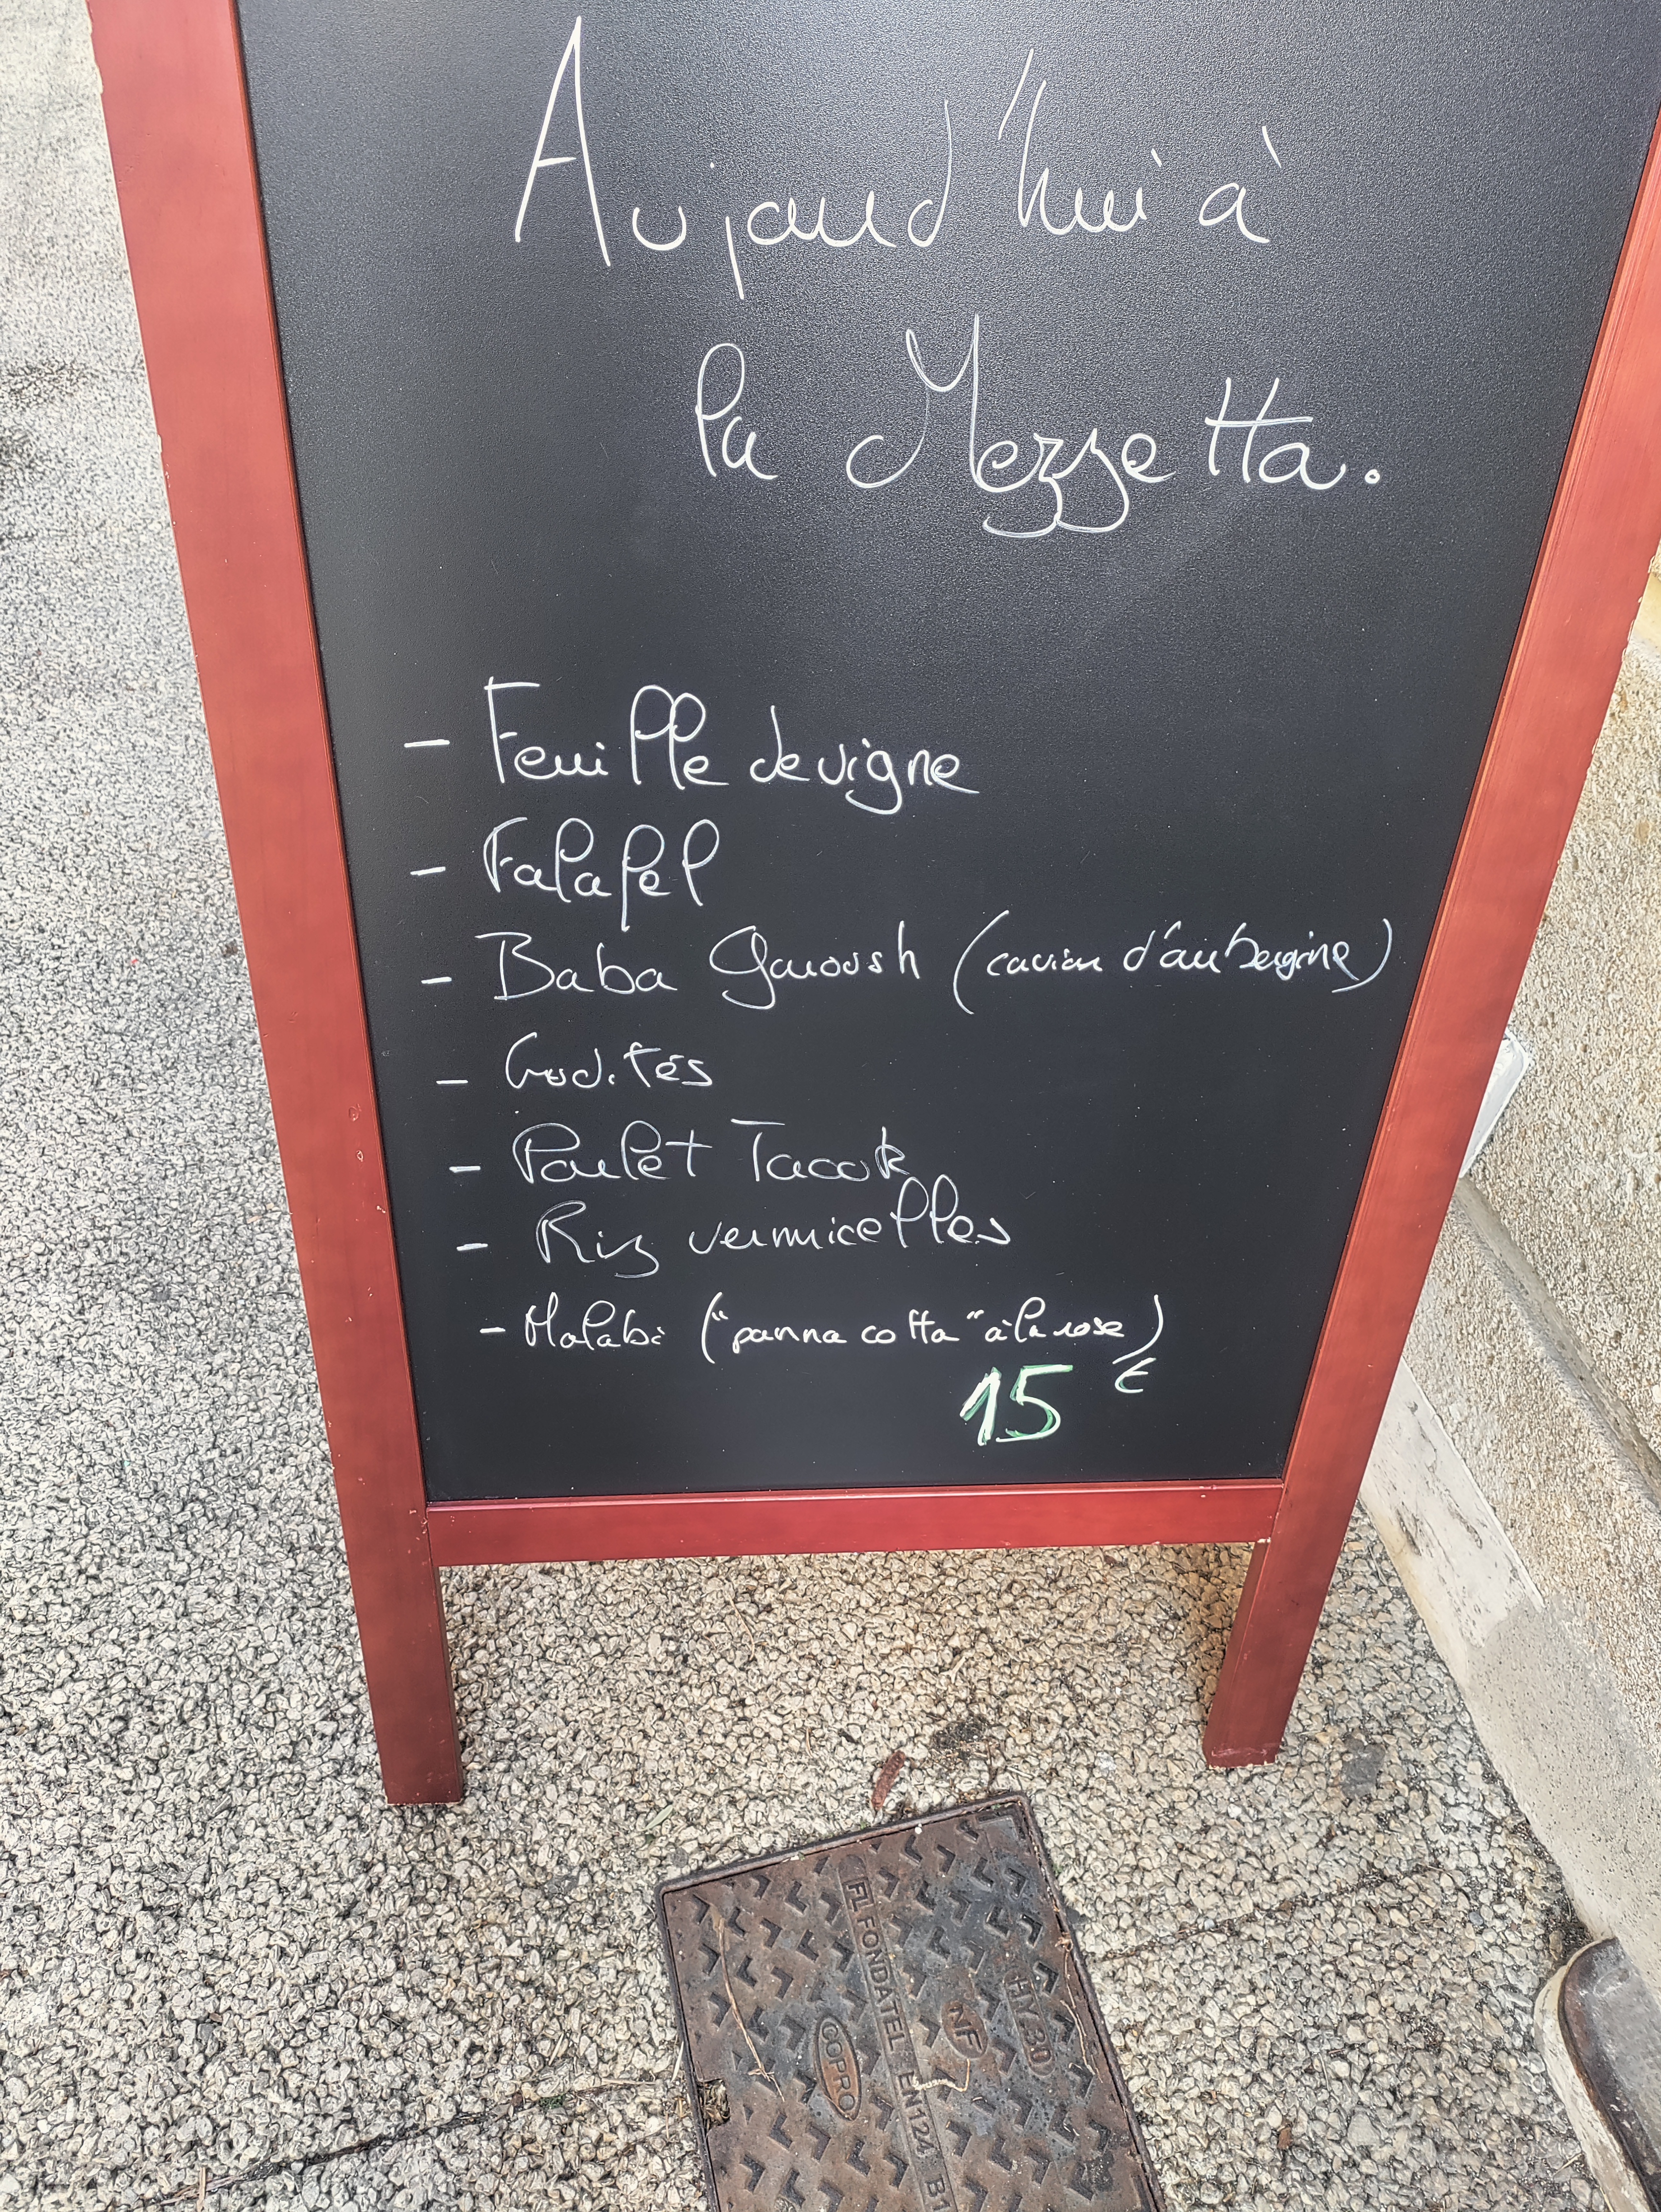 Aujourd'hui à
la Mezzetta.
- Feuille de vigne
- Falafel
- Baba Ganoush (caviar d'aubergine)
- Crudités
- Poulet Taouk
- Riz vermicelles
- Malabi ("panna cotta" à la rose)
15 €
FL FONDATEL EN124 B1
HM 30
NF
COPRO